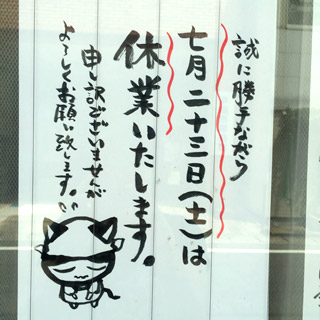 誠に勝手ながら
七月二十三日(土)は
休業いたします。
申し訳ございませんが
よろしくお願い致します。